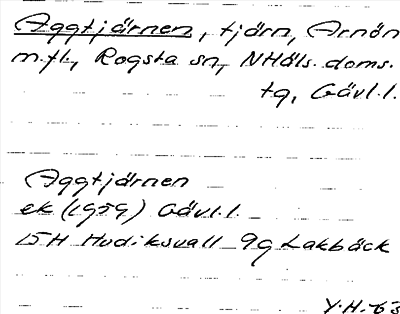 Aggtjärnen, tjärn, Arnön
m.fl., Rogsta sn, NHäls. doms.
tg, Gävl.l.
Aggtjärnen
ek (1959) Gävl.l.
15H Hudiksvall 9g Lakbäck
Y.H.-63